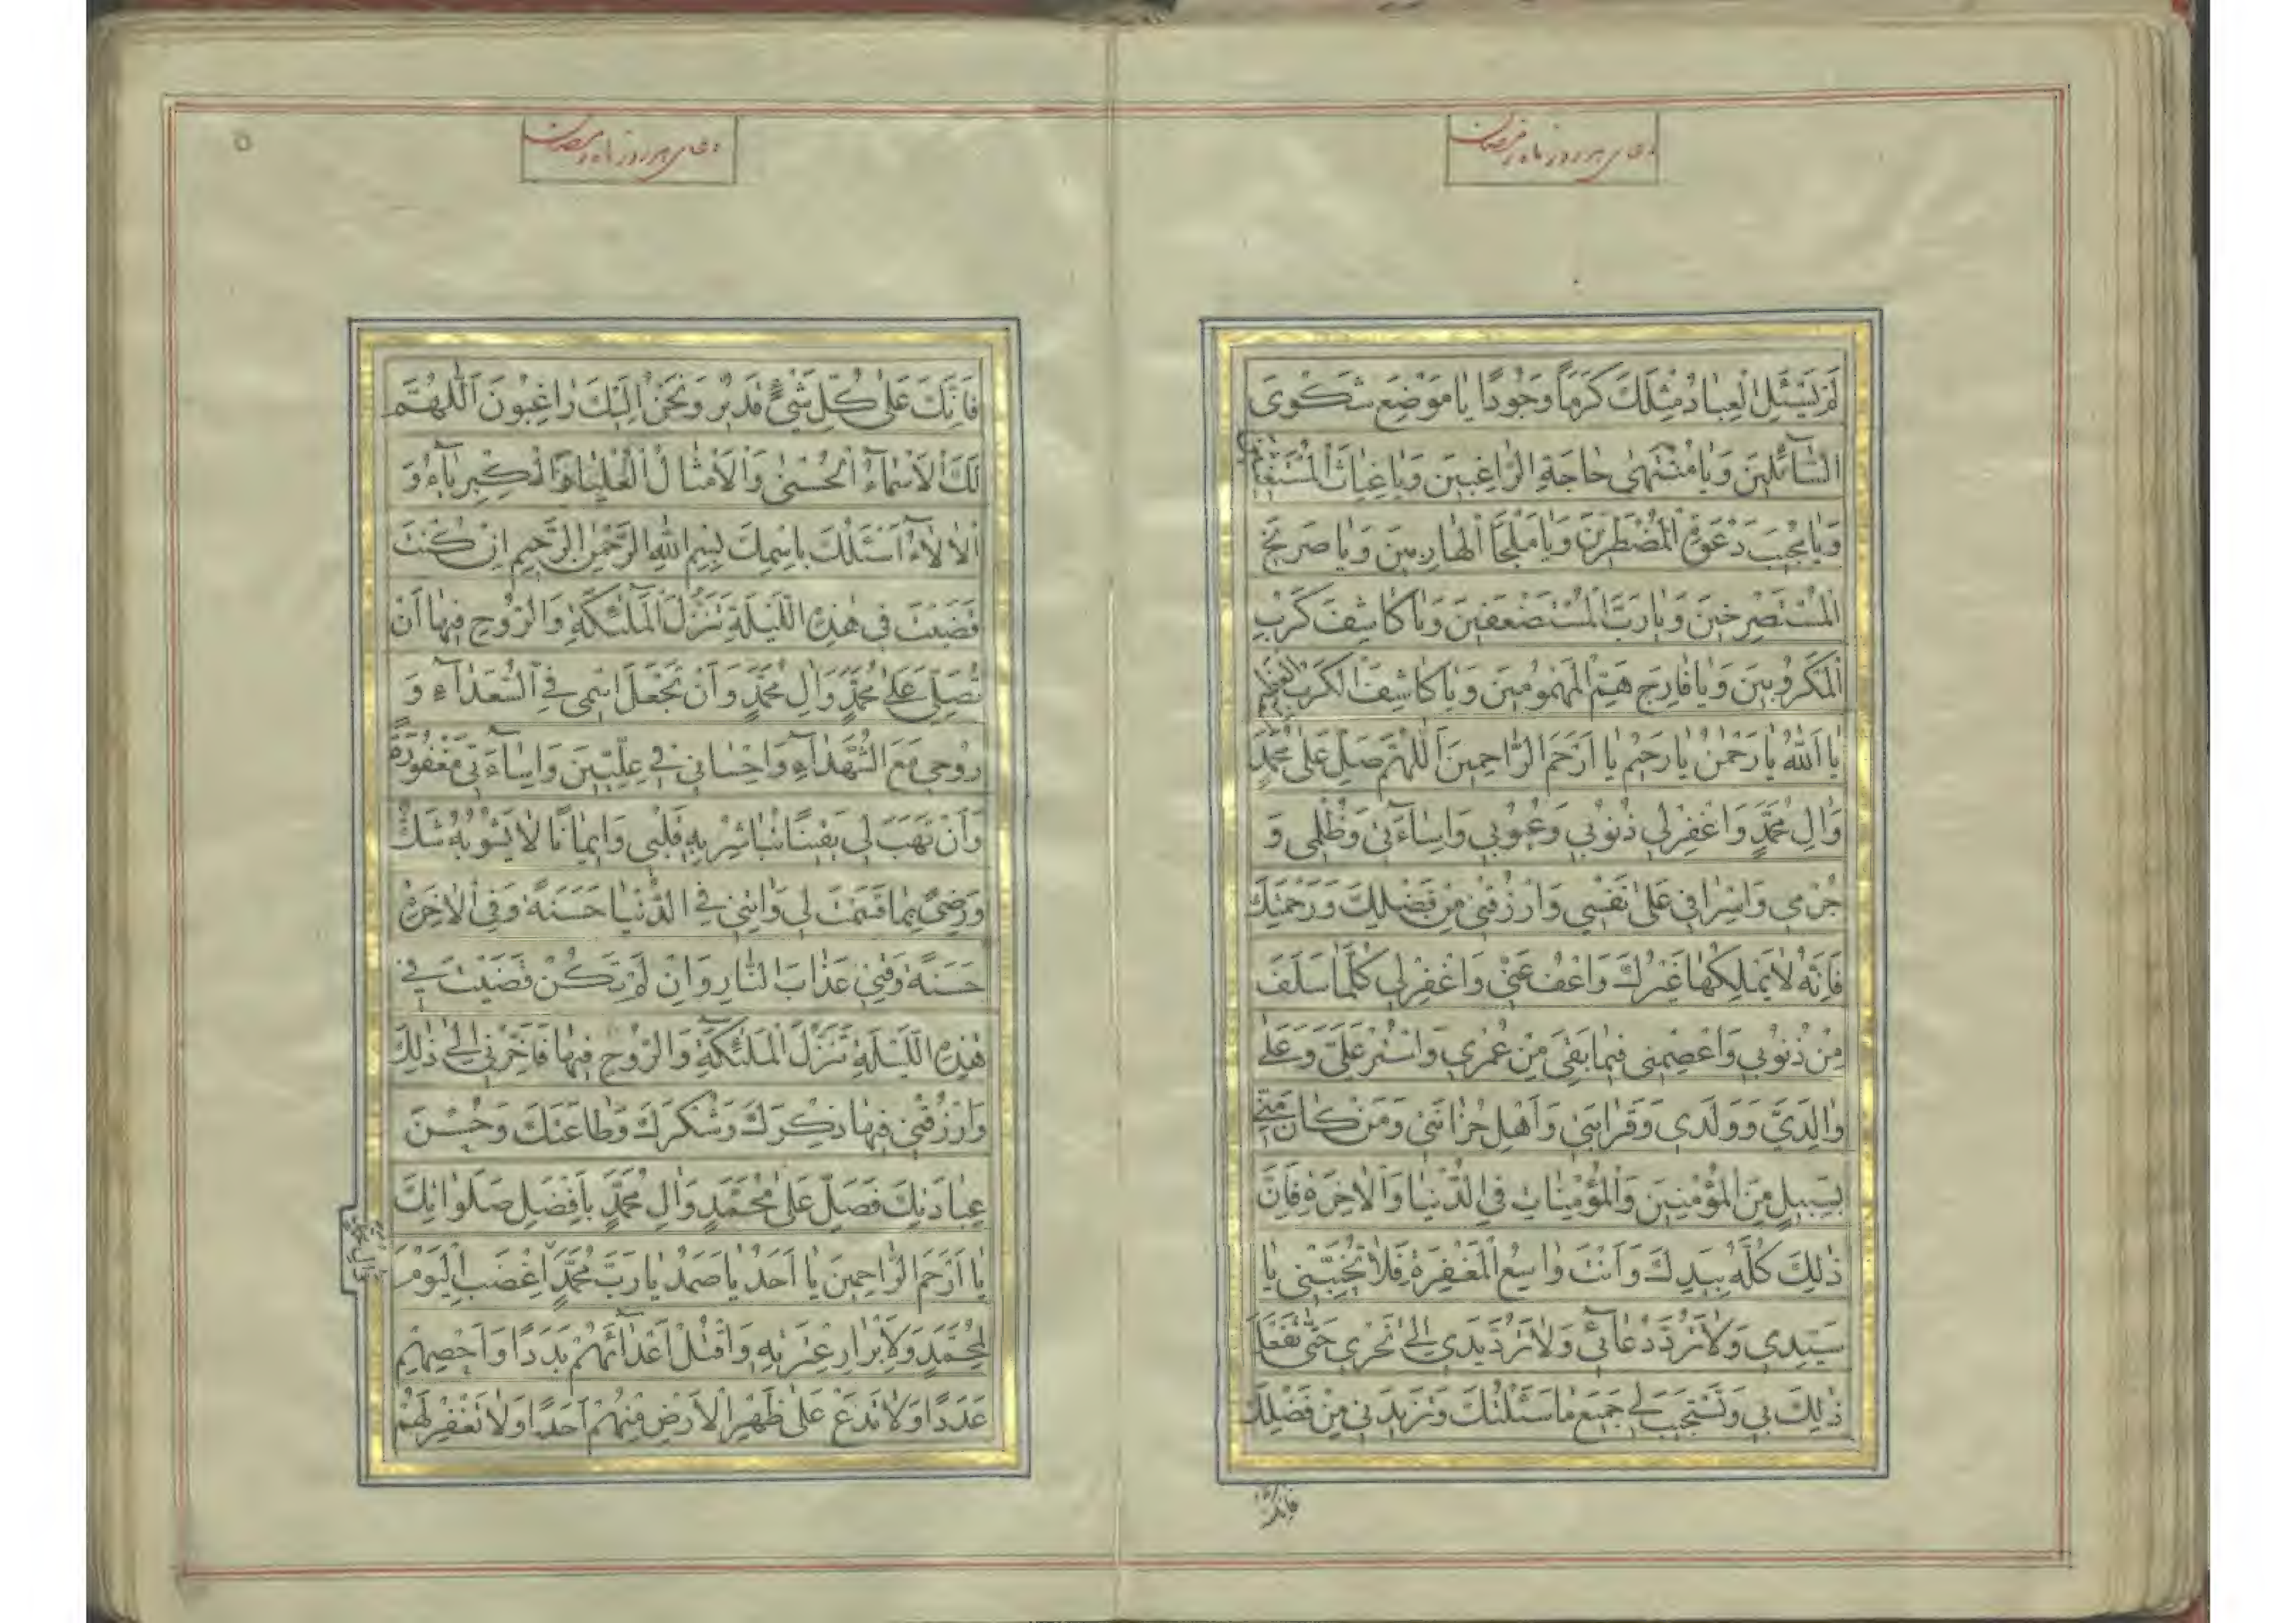 دعای هر روز ماه رمضان
لَمْ يَسْئَلِ الْعِبادُ مِثْلَكَ كَرَماً وَجُودًا يا مَوْضِعَ شَكْوَى
السّآئِلينَ وَيا مُنْتَهى حاجَةِ الرّاغِبينَ وَيا غِياثَ الْمُسْتَغيثينَ
وَيا مُجيبَ دَعْوَةِ الْمُضْطَرّينَ وَيا مَلْجَأَ الْهارِبينَ وَيا صَريخَ
الْمُسْتَصْرِخينَ وَيا رَبَّ الْمُسْتَضْعَفينَ وَيا كاشِفَ كَرْبِ
الْمَكْرُوبينَ وَيا فارِجَ هَمِّ الْمَهْمُومينَ وَيا كاشِفَ الْكَرْبِ الْعَظيمِ
يا اَللهُ يا رَحْمٰنُ يا رَحيمُ يا اَرْحَمَ الرّاحِمينَ اَللّهُمَّ صَلِّ عَلى مُحَمَّدٍ
وَالِ مُحَمَّدٍ وَاغْفِرْلي ذُنُوبي وَعُيُوبي وَاِساءَتي وَظُلْمي وَ
جُرْمي وَاِسْرافي عَلى نَفْسي وَارْزُقْني مِنْ فَضْلِكَ وَرَحْمَتِكَ
فَاِنَّهُ لا يَمْلِكُها غَيْرُكَ وَاعْفُ عَنّي وَاغْفِرْلي كُلَّما سَلَفَ
مِنْ ذُنُوبي وَاعْصِمْني فيما بَقِيَ مِنْ عُمْري وَاسْتُرْ عَلَيَّ وَعَلى
والِدَيَّ وَوَلَدي وَقَرابَتي وَاَهْلِ حُزانَتي وَمَنْ كانَ مِنّي
بِسَبيلٍ مِنَ الْمُؤْمِنينَ وَالْمُؤْمِناتِ فِي الدُّنْيا وَالْاخِرَةِ فَاِنَّ
ذٰلِكَ كُلَّهُ بِيَدِكَ وَاَنْتَ واسِعُ الْمَغْفِرَةِ فَلا تُخَيِّبْني يا
سَيِّدي وَلا تَرُدَّ دُعآئي وَلا تَرُدَّ يَدي اِلى نَحْري حَتّى تَفْعَلَ
ذٰلِكَ بي وَتَسْتَجيبَ لي جَميعَ ما سَئَلْتُكَ وَتَزيدَني مِنْ فَضْلِكَ
فانك
دعای هر روز ماه رمضان
۵
فَاِنَّكَ عَلى كُلِّ شَيْءٍ قَديرٌ وَنَحْنُ اِلَيْكَ راغِبُونَ اَللّهُمَّ
لَكَ الْاَسْمآءُ الْحُسْنى وَالْاَمْثالُ الْعُلْيا وَالْكِبْرِيآءُ وَ
الْالآءُ اَسْئَلُكَ بِاسْمِكَ بِسْمِ اللهِ الرَّحْمٰنِ الرَّحيمِ اِنْ كُنْتَ
قَضَيْتَ في هٰذِهِ اللَّيْلَةِ تَنَزُّلَ الْمَلٰٓئِكَةِ وَالرُّوحِ فيها اَنْ
تُصَلِّيَ عَلى مُحَمَّدٍ وَالِ مُحَمَّدٍ وَاَنْ تَجْعَلَ اسْمي فِي السُّعَدآءِ وَ
رُوحي مَعَ الشُّهَدآءِ وَاِحْساني في عِلِّيّينَ وَاِسآءَتي مَغْفُورَةً
وَاَنْ تَهَبَ لي يَقينًا تُباشِرُ بِهِ قَلْبي وَايمانًا لا يَشُوبُهُ شَكٌّ
وَرِضًى بِما قَسَمْتَ لي وَاتِني فِي الدُّنْيا حَسَنَةً وَفِي الْاخِرَةِ
حَسَنَةً وَقِني عَذابَ النّارِ وَاِنْ لَمْ تَكُنْ قَضَيْتَ في
هٰذِهِ اللَّيْلَةِ تَنَزُّلَ الْمَلٰٓئِكَةِ وَالرُّوحِ فيها فَاَخِّرْني اِلى ذٰلِكَ
وَارْزُقْني فيها ذِكْرَكَ وَشُكْرَكَ وَطاعَتَكَ وَحُسْنَ
عِبادَتِكَ فَصَلِّ عَلى مُحَمَّدٍ وَالِ مُحَمَّدٍ بِاَفْضَلِ صَلَواتِكَ
يا اَرْحَمَ الرّاحِمينَ يا اَحَدُ يا صَمَدُ يا رَبَّ مُحَمَّدٍ اِغْضَبِ الْيَوْمَ
لِمُحَمَّدٍ وَلِاَبْرارِ عِتْرَتِهِ وَاقْتُلْ اَعْدآئَهُمْ بَدَدًا وَاَحْصِهِمْ
عَدَدًا وَلا تَدَعْ عَلى ظَهْرِ الْاَرْضِ مِنْهُمْ اَحَدًا وَلا تَغْفِرْ لَهُمْ